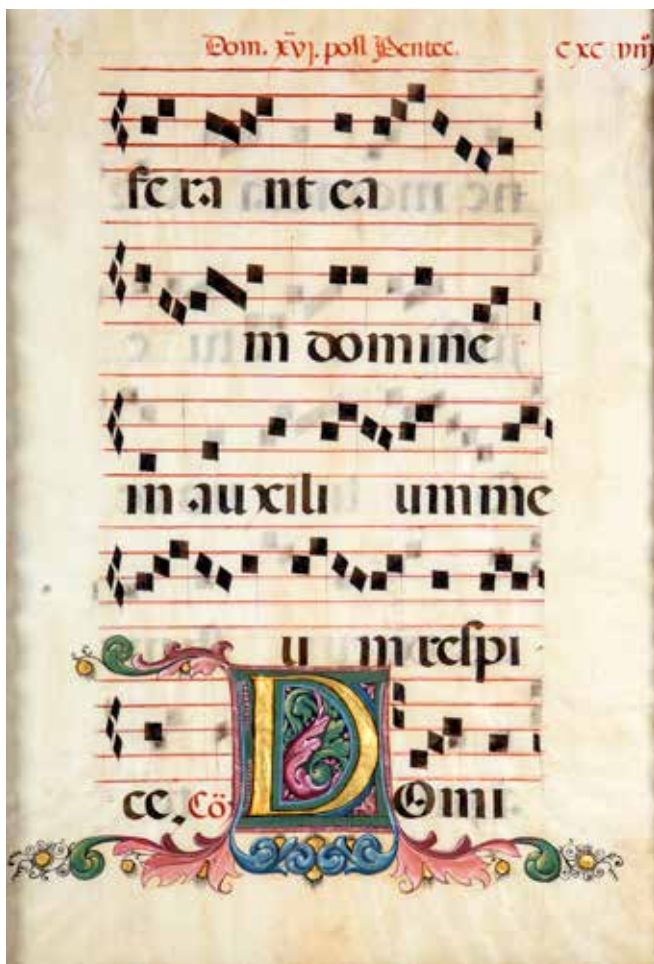 Dom. xvj. post Pentec. cxcviiij
fe ra nt ea
m domine
in auxili um me
u m respi
ce. Cō D Omi